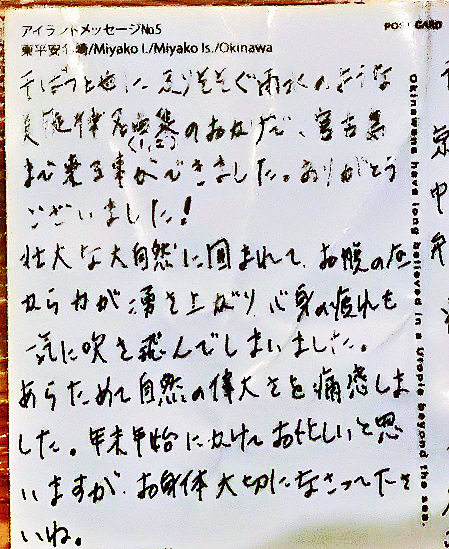 アイランドメッセージNo5
POST CARD
東平安名崎/Miyako I./Miyako Is./Okinawa
干ばつと地に ふりそそぐ雨水のような
のおかげで、宮古島
まで来る事ができました。ありがとう
ございました!
壮大な大自然に囲まれて、お腹の底
から力が湧き上がり、心身の疲れも
一気に吹き飛んでしまいました。
あらためて自然の偉大さを痛感しま
した。年末年始にかけてお忙しいと思
いますが、お身体大切になさって下さ
いね。
Okinawans have long believed in a Utopia beyond the sea.